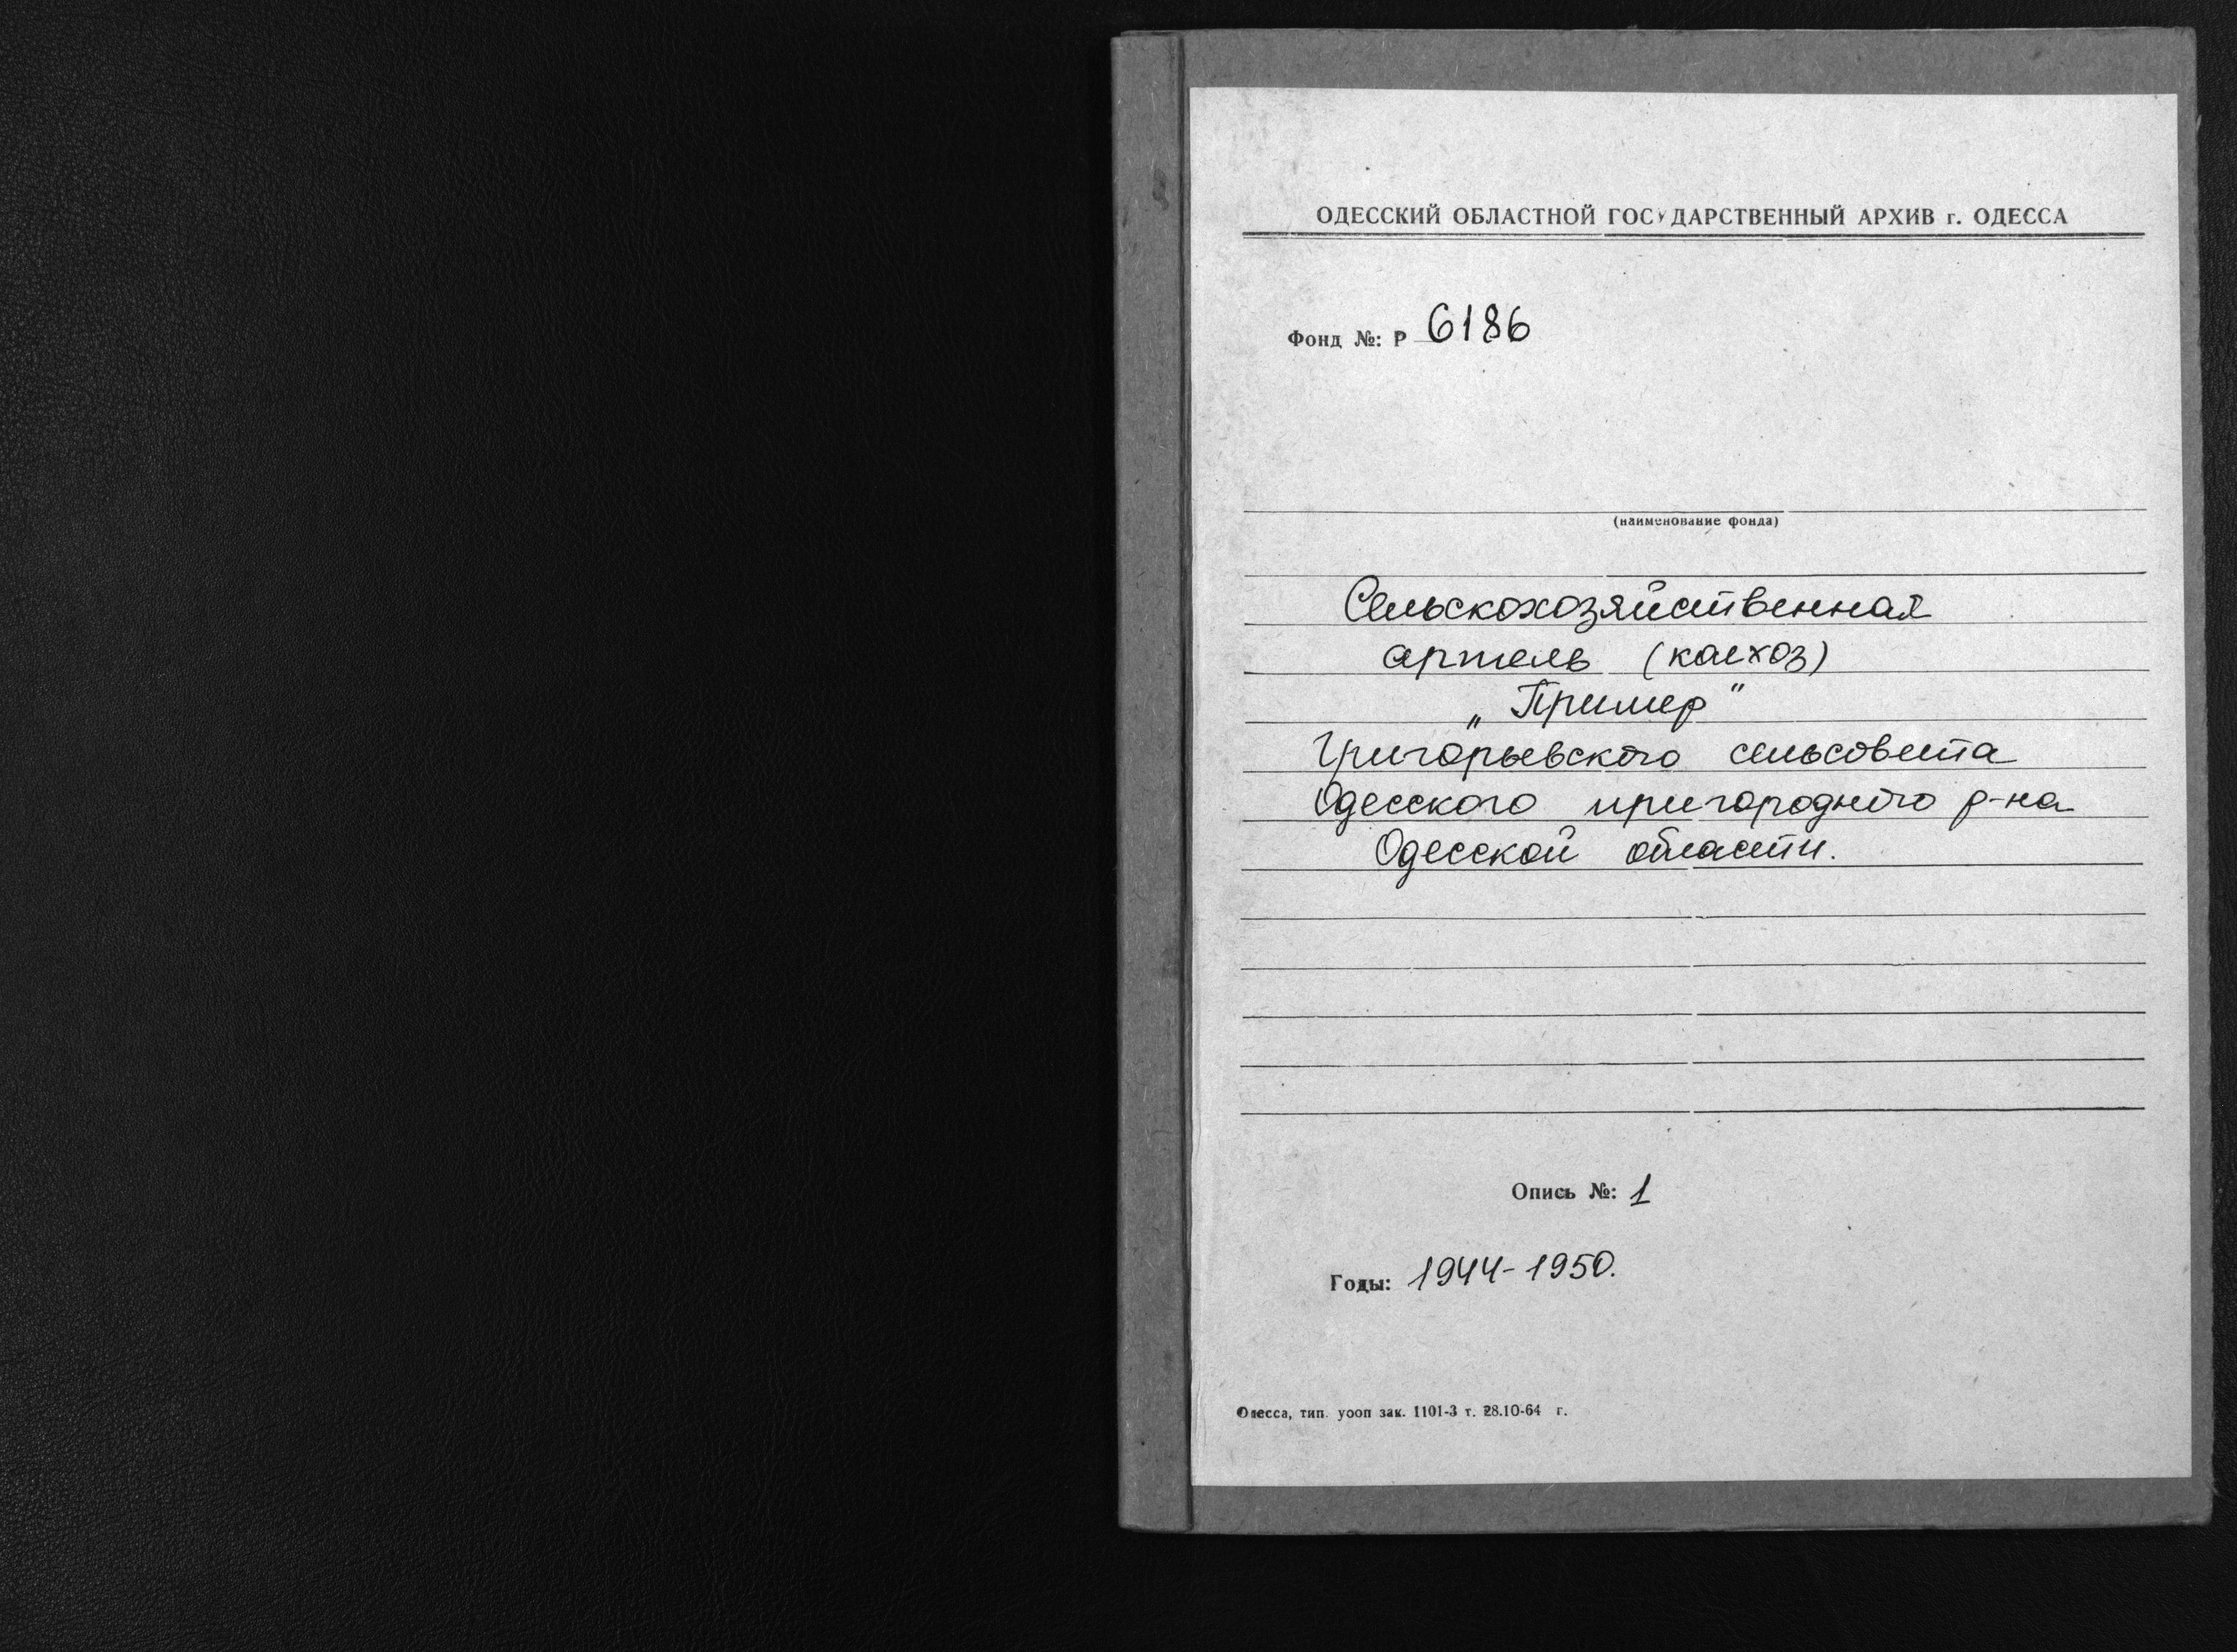 ОДЕССКИЙ ОБЛАСТНОЙ ГОСУДАРСТВЕННЫЙ АРХИВ г. ОДЕССА
Фонд №: Р 6186
(наименование фонда)
Сельскохозяйственная
артель (колхоз)
„Пример"
Григорьевского сельсовета
Одесского пригородного р-на
Одесской области.
Опись №: 1
Годы: 1944-1950.
Одесса, тип. уооп зак. 1101-3 т. 28.10-64 г.